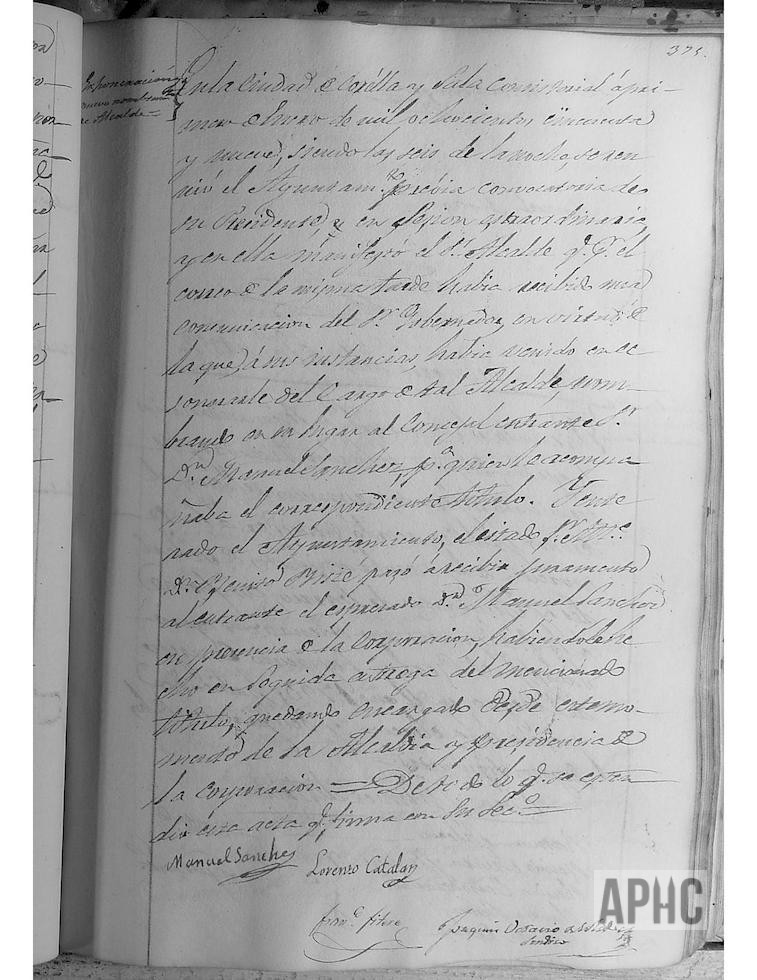 375.
Exhoneración y
nuevo nombram.to
de Alcalde =
En la Ciudad de Corella y Sala Consistorial á pri-
mero de Enero de mil ochocientos cincuenta
y nueve, siendo las seis de la noche, se reu
nió el Ayuntam.to prévia convocatoria de
su Presidente, y en Sesion extraordinaria,
y en ella manifestó el S.r Alcalde q.e p.r el
correo de la misma tarde habia recibido una
comunicacion del S.r Gobernador, en virtud de
la que, á sus instancias, habia venido en ec
sonerarle del Cargo de tal Alcalde, nom-
brando en su lugar al Concejal entrante S.r
D.n Manuel Sanchez, p.a quien le acompa
ñaba el correspondiente título. Y ente
rado el Ayuntamiento, el citado S.r Alc.e
D.n Benito pasó a recibir juramento
al entrante el espresado D.n Manuel Sanchez
en presencia de la Corporacion, habiendole he
cho en seguida entrega del mencionado
título, quedando encargado desde este mo-
mento de la Alcaldia y presidencia de
la corporacion = De todo lo q.e se esten
dió esta acta q.e firma con su Sec.o
Manuel Sanchez Lorenzo Catalan
Fran.co Joaquin Octavio de Toledo
Sindico
APHC